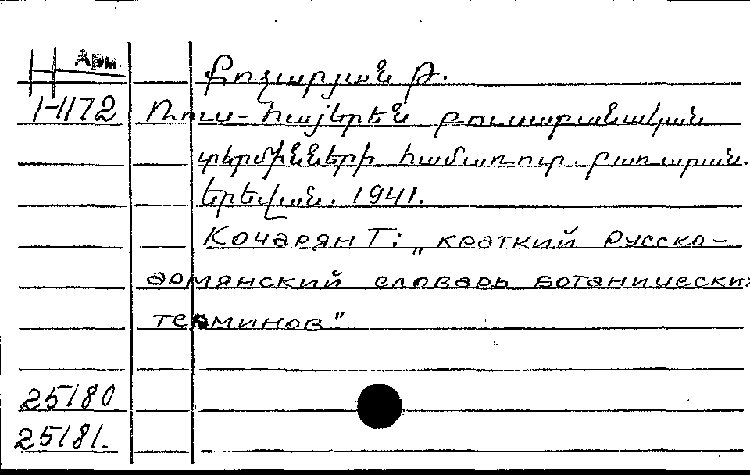 Арм.
Քոչարյան Թ.
1-1172 Ռուս-հայերեն բուսաբանական
տերմինների համառոտ բառարան.
Երևան. 1941.
Кочарян Т: „краткий Русско-
армянский словарь ботанически
терминов"
25180
25181.